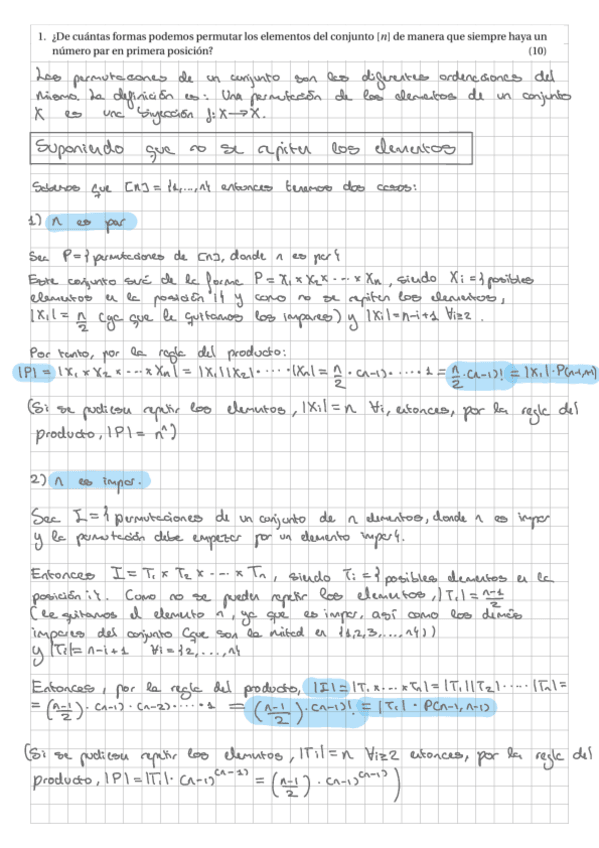 1. ¿De cuántas formas podemos permutar los elementos del conjunto [n] de manera que siempre haya un
número par en primera posición? (10)
Las permutaciones de un conjunto son las diferentes ordenaciones del
mismo. La definición es: Una permutación de los elementos de un conjunto
X es una biyección f: X→X.
Suponiendo que no se repiten los elementos
Sabemos que [n] = {1,...,n} entonces tenemos dos casos:
1) n es par
Sea P = {permutaciones de [n], donde n es par}
Este conjunto será de la forma P = X₁ × X₂ × ··· × Xₙ, siendo Xᵢ = {posibles
elementos en la posición i} y como no se repiten los elementos,
|X₁| = n/2 (ya que le quitamos los impares) y |Xᵢ| = n-i+1 ∀i≥2.
Por tanto, por la regla del producto:
|P| = |X₁ × X₂ × ··· × Xₙ| = |X₁||X₂| ··· |Xₙ| = n/2 · (n-1) · ··· · 1 = n/2 · (n-1)! = |X₁| · P(n-1,n-1)
(Si se pudiesen repetir los elementos, |Xᵢ| = n ∀i, entonces, por la regla del
producto, |P| = nⁿ)
2) n es impar.
Sea I = {permutaciones de un conjunto de n elementos, donde n es impar
y la permutación debe empezar por un elemento impar}.
Entonces I = T₁ × T₂ × ··· × Tₙ, siendo Tᵢ = {posibles elementos en la
posición i}. Como no se pueden repetir los elementos, |T₁| = n-1/2
(le quitamos el elemento n, ya que es impar, así como los demás
impares del conjunto (que son la mitad en {1,2,3,...,n}))
y |Tᵢ| = n-i+1 ∀i = {2,...,n}
Entonces, por la regla del producto, |I| = |T₁ × ··· × Tₙ| = |T₁||T₂| ···· |Tₙ| =
= (n-1/2) · (n-1) · (n-2) ····· 1 = (n-1/2) · (n-1)! = |T₁| · P(n-1,n-1)
(Si se pudiesen repetir los elementos, |Tᵢ| = n ∀i≥2 entonces, por la regla del
producto, |P| = |T₁| · (n-1)⁽ⁿ⁻¹⁾ = (n-1/2) · (n-1)⁽ⁿ⁻¹⁾)